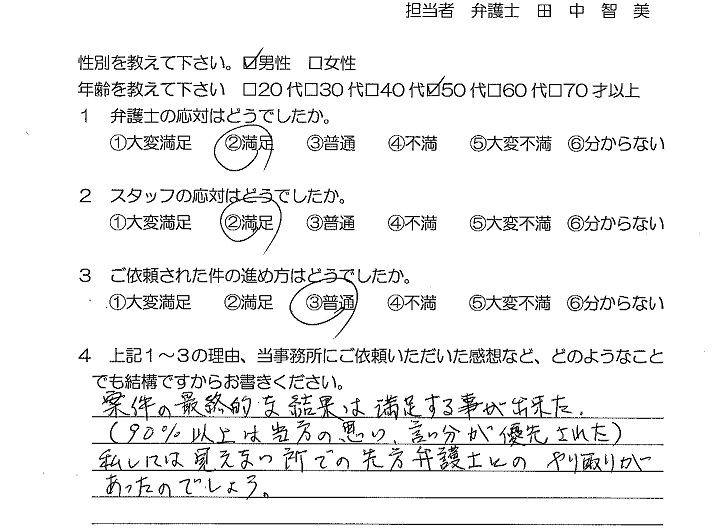 担当者 弁護士 田 中 智 美
性別を教えて下さい。☑男性 □女性
年齢を教えて下さい □20代□30代□40代☑50代□60代□70才以上
1 弁護士の応対はどうでしたか。
①大変満足 ②満足 ③普通 ④不満 ⑤大変不満 ⑥分からない
2 スタッフの応対はどうでしたか。
①大変満足 ②満足 ③普通 ④不満 ⑤大変不満 ⑥分からない
3 ご依頼された件の進め方はどうでしたか。
①大変満足 ②満足 ③普通 ④不満 ⑤大変不満 ⑥分からない
4 上記1～3の理由、当事務所にご依頼いただいた感想など、どのようなこと
でも結構ですからお書きください。
案件の最終的な結果は満足する事が出来た。
(90%以上は当方の思い、言い分が優先された)
私しには見えまい所での先方弁護士との やり取りが
あったのでしょう。